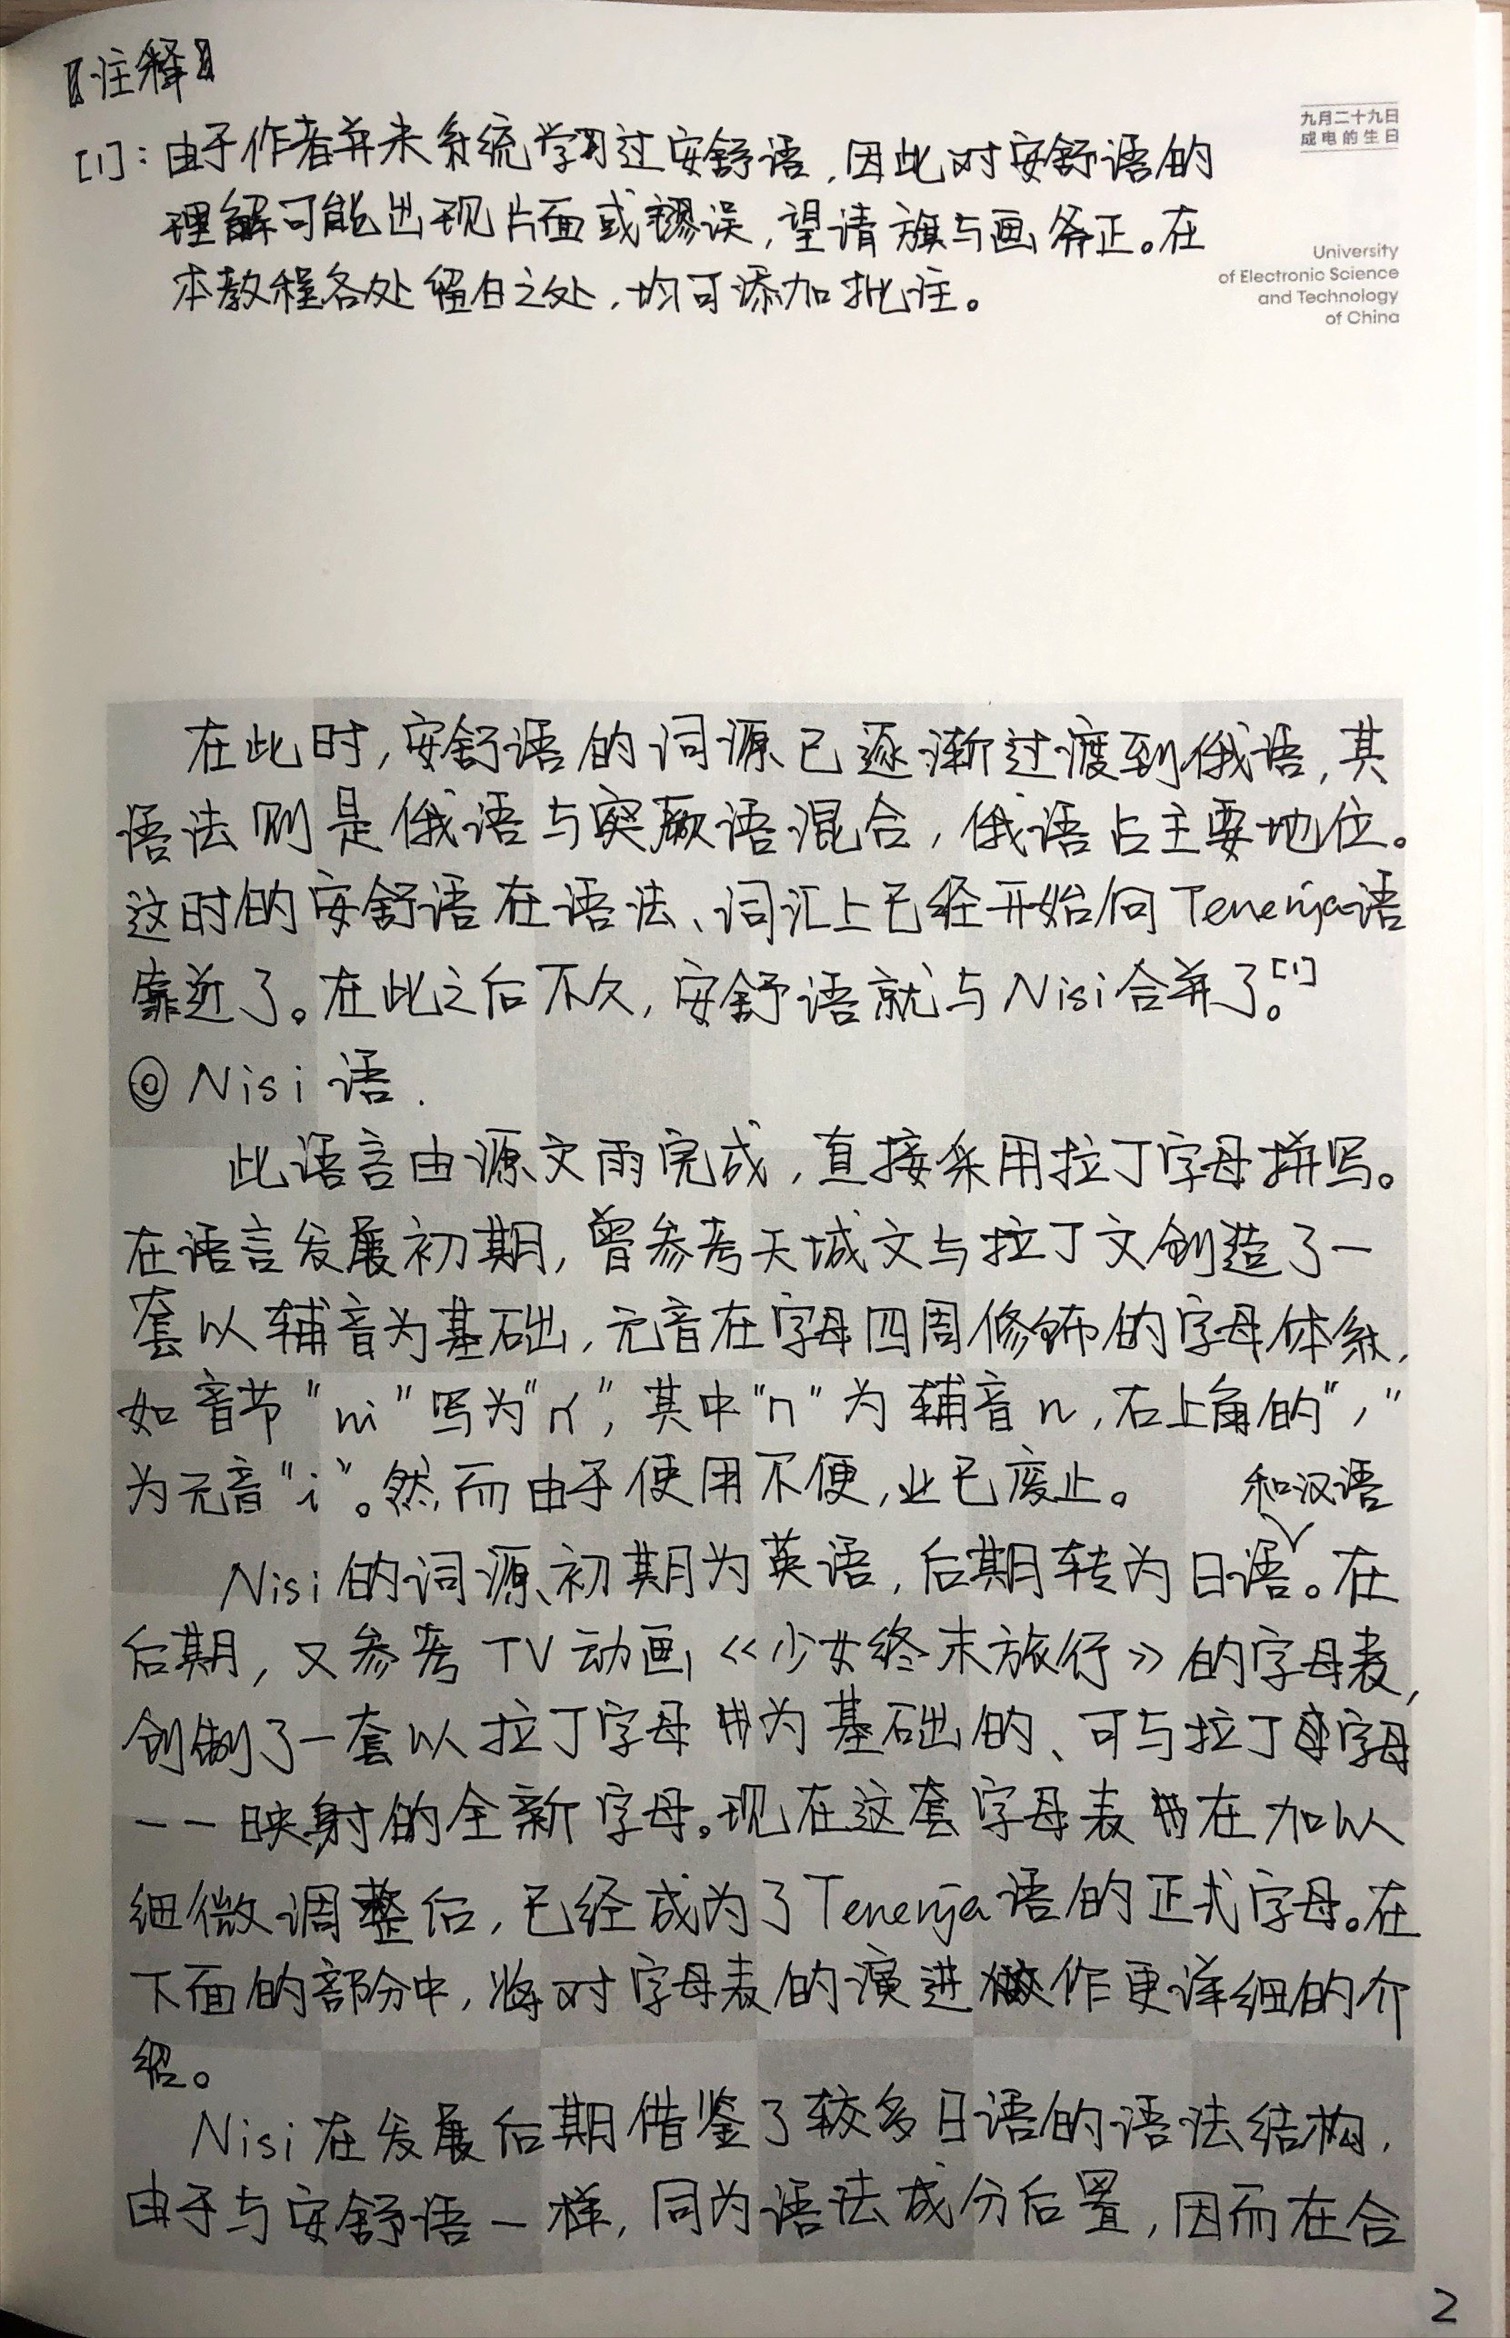 【注释】
[1]：由于作者并未系统学习过安舒语，因此对安舒语的
理解可能出现片面或谬误，望请旗与画斧正。在
本教程各处留白之处，均可添加批注。
九月二十九日
成电的生日
University
of Electronic Science
and Technology
of China
在此时，安舒语的词源已逐渐过渡到俄语，其
语法则是俄语与突厥语混合，俄语占主要地位。
这时的安舒语在语法、词汇上已经开始向Tenenja语
靠近了。在此之后不久，安舒语就与Nisi合并了。[1]
◎ Nisi 语.
此语言由源文雨完成，直接采用拉丁字母拼写。
在语言发展初期，曾参考天城文与拉丁文创造了一
套以辅音为基础，元音在字母四周修饰的字母体系，
如音节“ni”写为“n′”，其中“n”为辅音n，右上角的“′”
为元音“i”。然而由于使用不便，业已废止。
和汉语
Nisi的词源初期为英语，后期转为日语。在
后期，又参考TV动画《少女终末旅行》的字母表，
创制了一套以拉丁字母为基础的、可与拉丁字母
一一映射的全新字母。现在这套字母表在加以
细微调整后，已经成为了Tenenja语的正式字母。在
下面的部分中，将对字母表的演进作更详细的介
绍。
Nisi在发展后期借鉴了较多日语的语法结构，
由于与安舒语一样，同为语法成分后置，因而在合
2